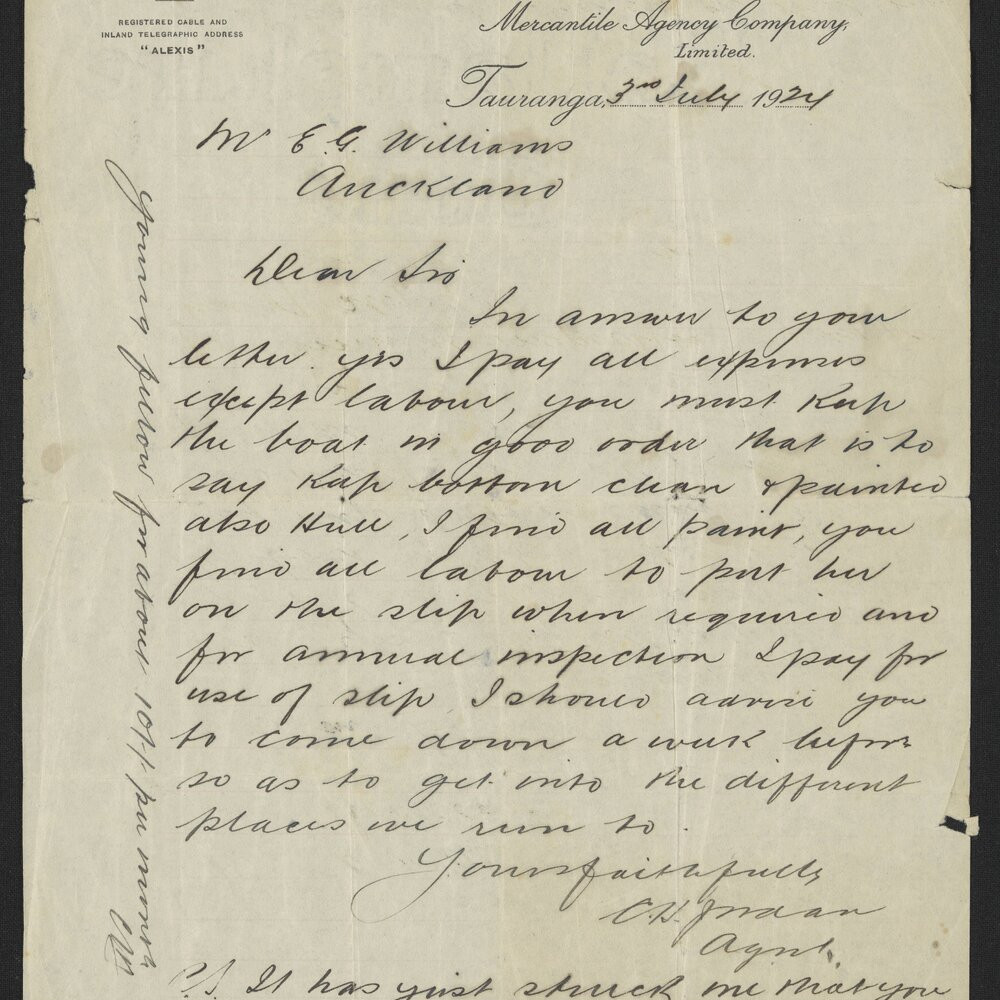 REGISTERED CABLE AND
INLAND TELEGRAPHIC ADDRESS
"ALEXIS"
Mercantile Agency Company,
Limited.
Tauranga, 3rd July 1924
Mr E. G. Williams
Auckland
Dear Sir
In answer to your
letter. yes I pay all expenses
except labour, you must keep
the boat in good order that is to
say keep bottom clean & painted
also Hull, I find all paint, you
find all labour to put her
on the slip when required and
for annual inspection I pay for
use of slip I should advise you
to come down a week before
so as to get into the different
places we run to.
Yours faithfully
Jordan
Agent.
P.S. It has just struck me that you
young fellow for about 10/- per month